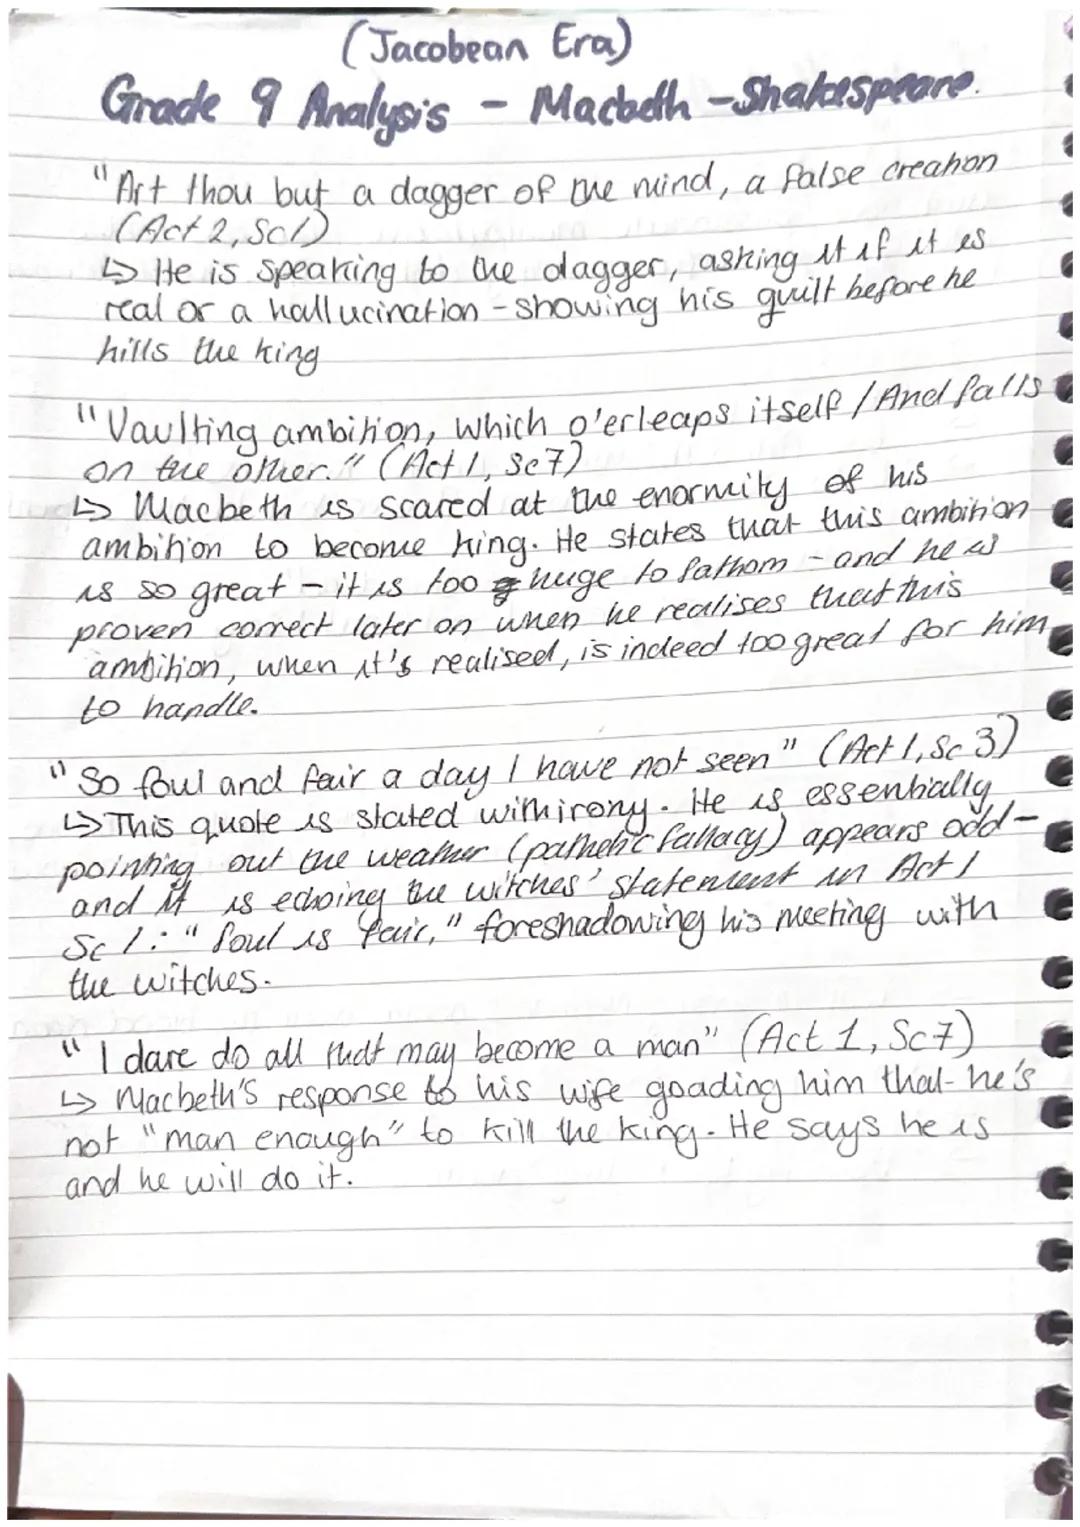 (Jacobean Era)
Grade 9 Analysis - Macbeth - Shakespeare.
"Art thou but a dagger of the mind, a false creation
(Act 2, Sc1)
↳ He is speaking to the dagger, asking it if it is
real or a hallucination - showing his guilt before he
kills the king
"Vaulting ambition, which o'erleaps itself / And falls
on the other." (Act 1, Sc7)
↳ Macbeth is scared at the enormity of his
ambition to become king. He states that this ambition
is so great - it is too huge to fathom - and he is
proven correct later on when he realises that this
ambition, when it's realised, is indeed too great for him
to handle.
"So foul and fair a day I have not seen" (Act 1, Sc 3)
↳ This quote is stated with irony. He is essentially
pointing out the weather (pathetic fallacy) appears odd -
and it is echoing the witches' statement in Act 1
Sc 1: "foul is fair," foreshadowing his meeting with
the witches.
"I dare do all that may become a man" (Act 1, Sc7)
↳ Macbeth's response to his wife goading him that he's
not "man enough" to kill the king. He says he is
and he will do it.